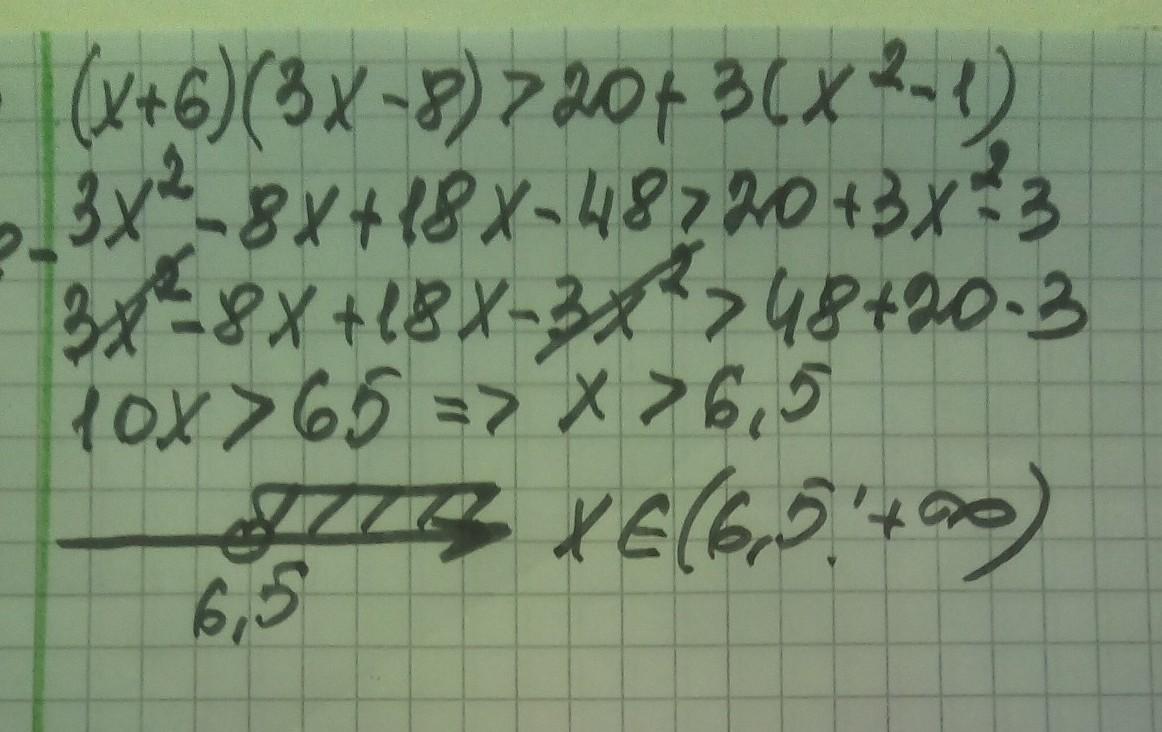 (x+6)(3x-8)>20+3(x²-1)
3x²-8x+18x-48>20+3x²-3
3x²-8x+18x-3x²>48+20-3
10x>65 => x>6,5
x∈(6,5;+∞)
6,5